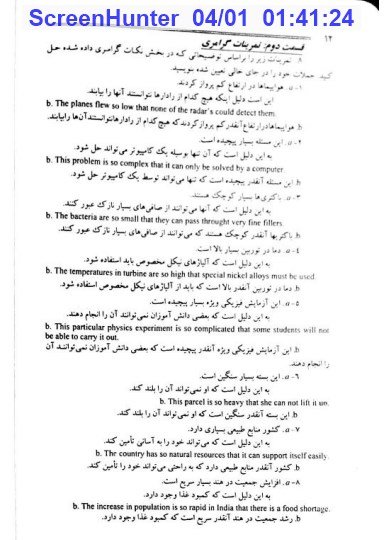 ScreenHunter 04/01 01:41:24
۱۲
قسمت دوم: تمرینات گرامری
۸. تمرینات زیر را براساس توضیحاتی که در بخش نکات گرامری داده شده حل
کنید. جملات خود را در جای خالی تعیین شده بنویسید.
۱- a. هواپیماها در ارتفاع کم پرواز کردند.
این است دلیل اینکه هیچ کدام از رادارها نتوانستند آنها را بیابند.
b. The planes flew so low that none of the radar's could detect them.
b. هواپیماها در ارتفاع آنقدر کم پرواز کردند که هیچ کدام از رادارها نتوانستند آن‌ها را بیابند.
۲- a. این مسئله بسیار پیچیده است.
به این دلیل است که آن تنها بوسیله یک کامپیوتر می‌تواند حل شود.
b. This problem is so complex that it can only be solved by a computer
b. این مسئله آنقدر پیچیده است که تنها می‌تواند توسط یک کامپیوتر حل شود.
۳- a. باکتری‌ها بسیار کوچک هستند.
به این دلیل است که آنها می‌توانند از صافی‌های بسیار نازک عبور کنند.
b. The bacteria are so small that they can pass throught very fine fillers.
b. باکتریها آنقدر کوچک هستند که می‌توانند از صافی‌های بسیار نازک عبور کنند.
۴- a. دما در توربین بسیار بالا است.
به این دلیل است که آلیاژهای نیکل مخصوص باید استفاده شود.
b. The temperatures in turbine are so high that special nickel alloys must be used.
b. دما در توربین آنقدر بالا است که باید از آلیاژهای نیکل مخصوص استفاده شود.
۵- a. این آزمایش فیزیکی ویژه بسیار پیچیده است.
به این دلیل است که بعضی دانش آموزان نمی‌توانند آن را انجام دهند.
b. This particular physics experiment is so complicated that some students will not
be able to carry it out.
b. این آزمایش فیزیکی ویژه آنقدر پیچیده است که بعضی دانش آموزان نمی‌توانند آن
را انجام دهند.
۶- a. این بسته بسیار سنگین است.
به این دلیل است که او نمی‌تواند آن را بلند کند.
b. This parcel is so heavy that she can not lift it up.
b. این بسته آنقدر سنگین است که او نمی‌تواند آن را بلند کند.
۷- a. کشور منابع طبیعی بسیاری دارد.
به این دلیل است که می‌تواند خود را به آسانی تأمین کند.
b. The country has so natural resources that it can support itself easily.
b. کشور آنقدر منابع طبیعی دارد که به راحتی می‌تواند خود را تأمین کند.
۸- a. افزایش جمعیت در هند بسیار سریع است.
به این دلیل است که کمبود غذا وجود دارد.
b. The increase in population is so rapid in India that there is a food shortage.
b. رشد جمعیت در هند آنقدر سریع است که کمبود غذا وجود دارد.